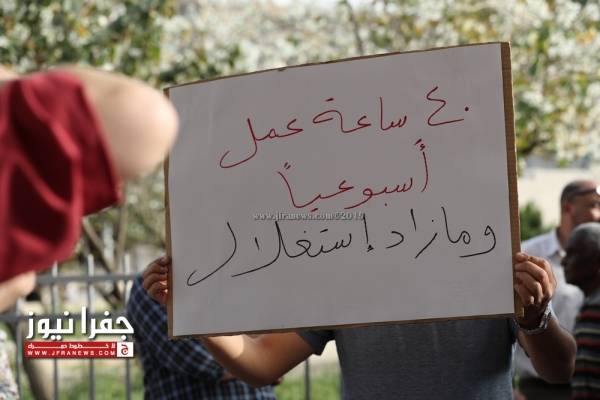 ٤٠ ساعة عمل
أسبوعياً
www.jfranews.com©2019
ومازاد إستغلال
جفرا نيوز
لا خطوط حمراء
WWW.JFRANEWS.COM